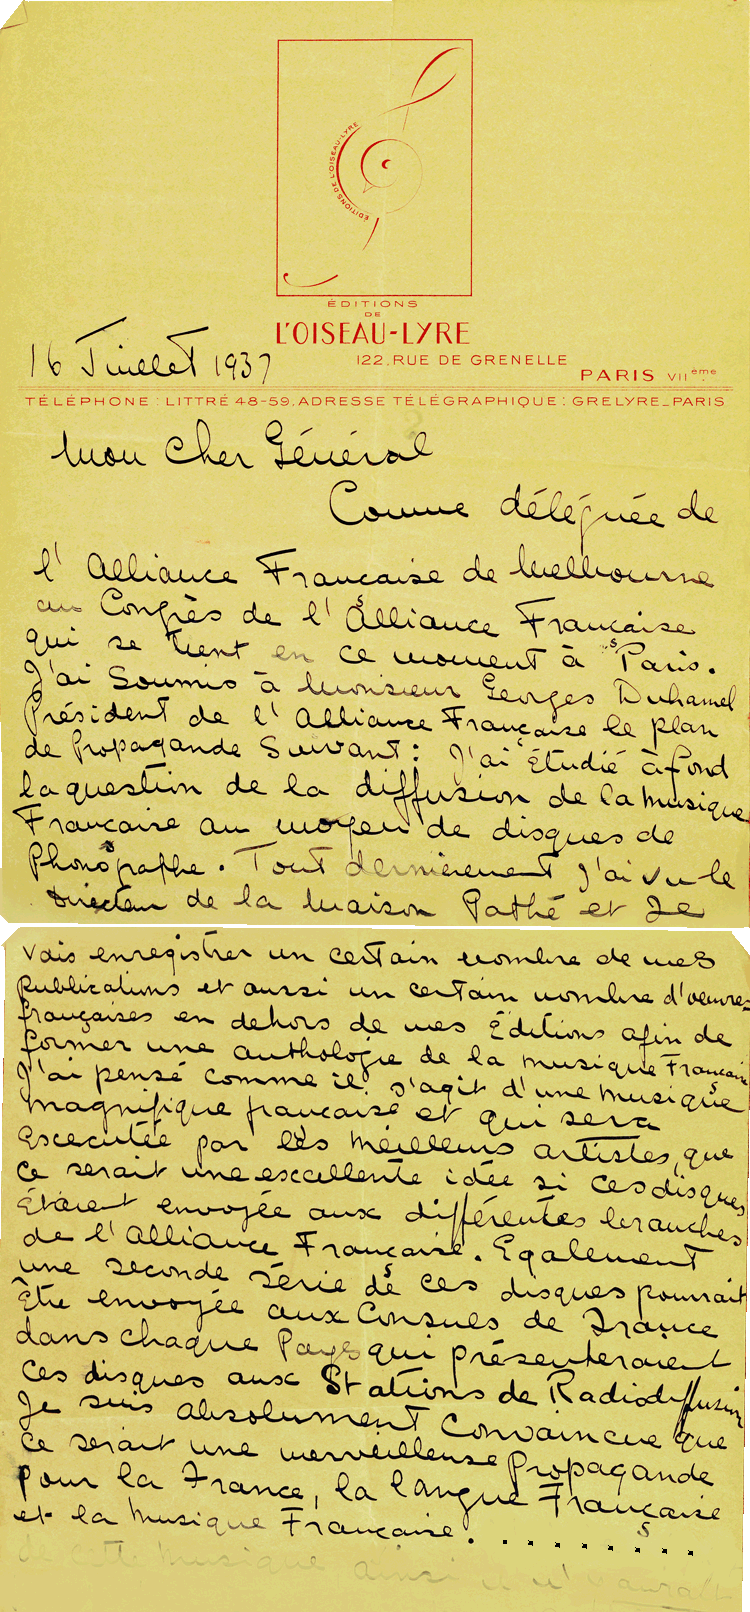 ÉDITIONS DE L'OISEAU-LYRE
ÉDITIONS
DE
L'OISEAU-LYRE
122. RUE DE GRENELLE
PARIS VIIème
16 Juillet 1937
TÉLÉPHONE : LITTRÉ 48-59. ADRESSE TÉLÉGRAPHIQUE : GRELYRE_PARIS
Mon Cher Général
Comme déléguée de
l'Alliance Française de Melbourne
au Congrès de l'Alliance Française
qui se tient en ce moment à Paris.
J'ai Soumis à Monsieur Georges Duhamel
Président de l'Alliance Française le plan
de Propagande Suivant : J'ai Étudié à fond
la question de la diffusion de la Musique
Française au moyen de disques de
Phonographe. Tout dernièrement J'ai vu le
Directeur de la Maison Pathé et Je
vais enregistrer un certain nombre de mes
publications et aussi un certain nombre d'oeuvres
françaises en dehors de mes Éditions afin de
former une anthologie de la musique Française
J'ai pensé comme il s'agit d'une musique
magnifique française et qui sera
exécutée par les meilleurs artistes, que
ce serait une excellente idée si ces disques
Étaient envoyée aux différentes branches
de l'Alliance Française. Egalement
une seconde série de ces disques pourrait
Être envoyée aux Consuls de France
dans chaque Pays qui présenteraient
ces disques aux Stations de Radiodiffusion
Je suis absolument convaincue que
ce serait une merveilleuse Propagande
pour la France, la langue Française
et la Musique Française. . . . . . . . . .
de cette musique, ainsi